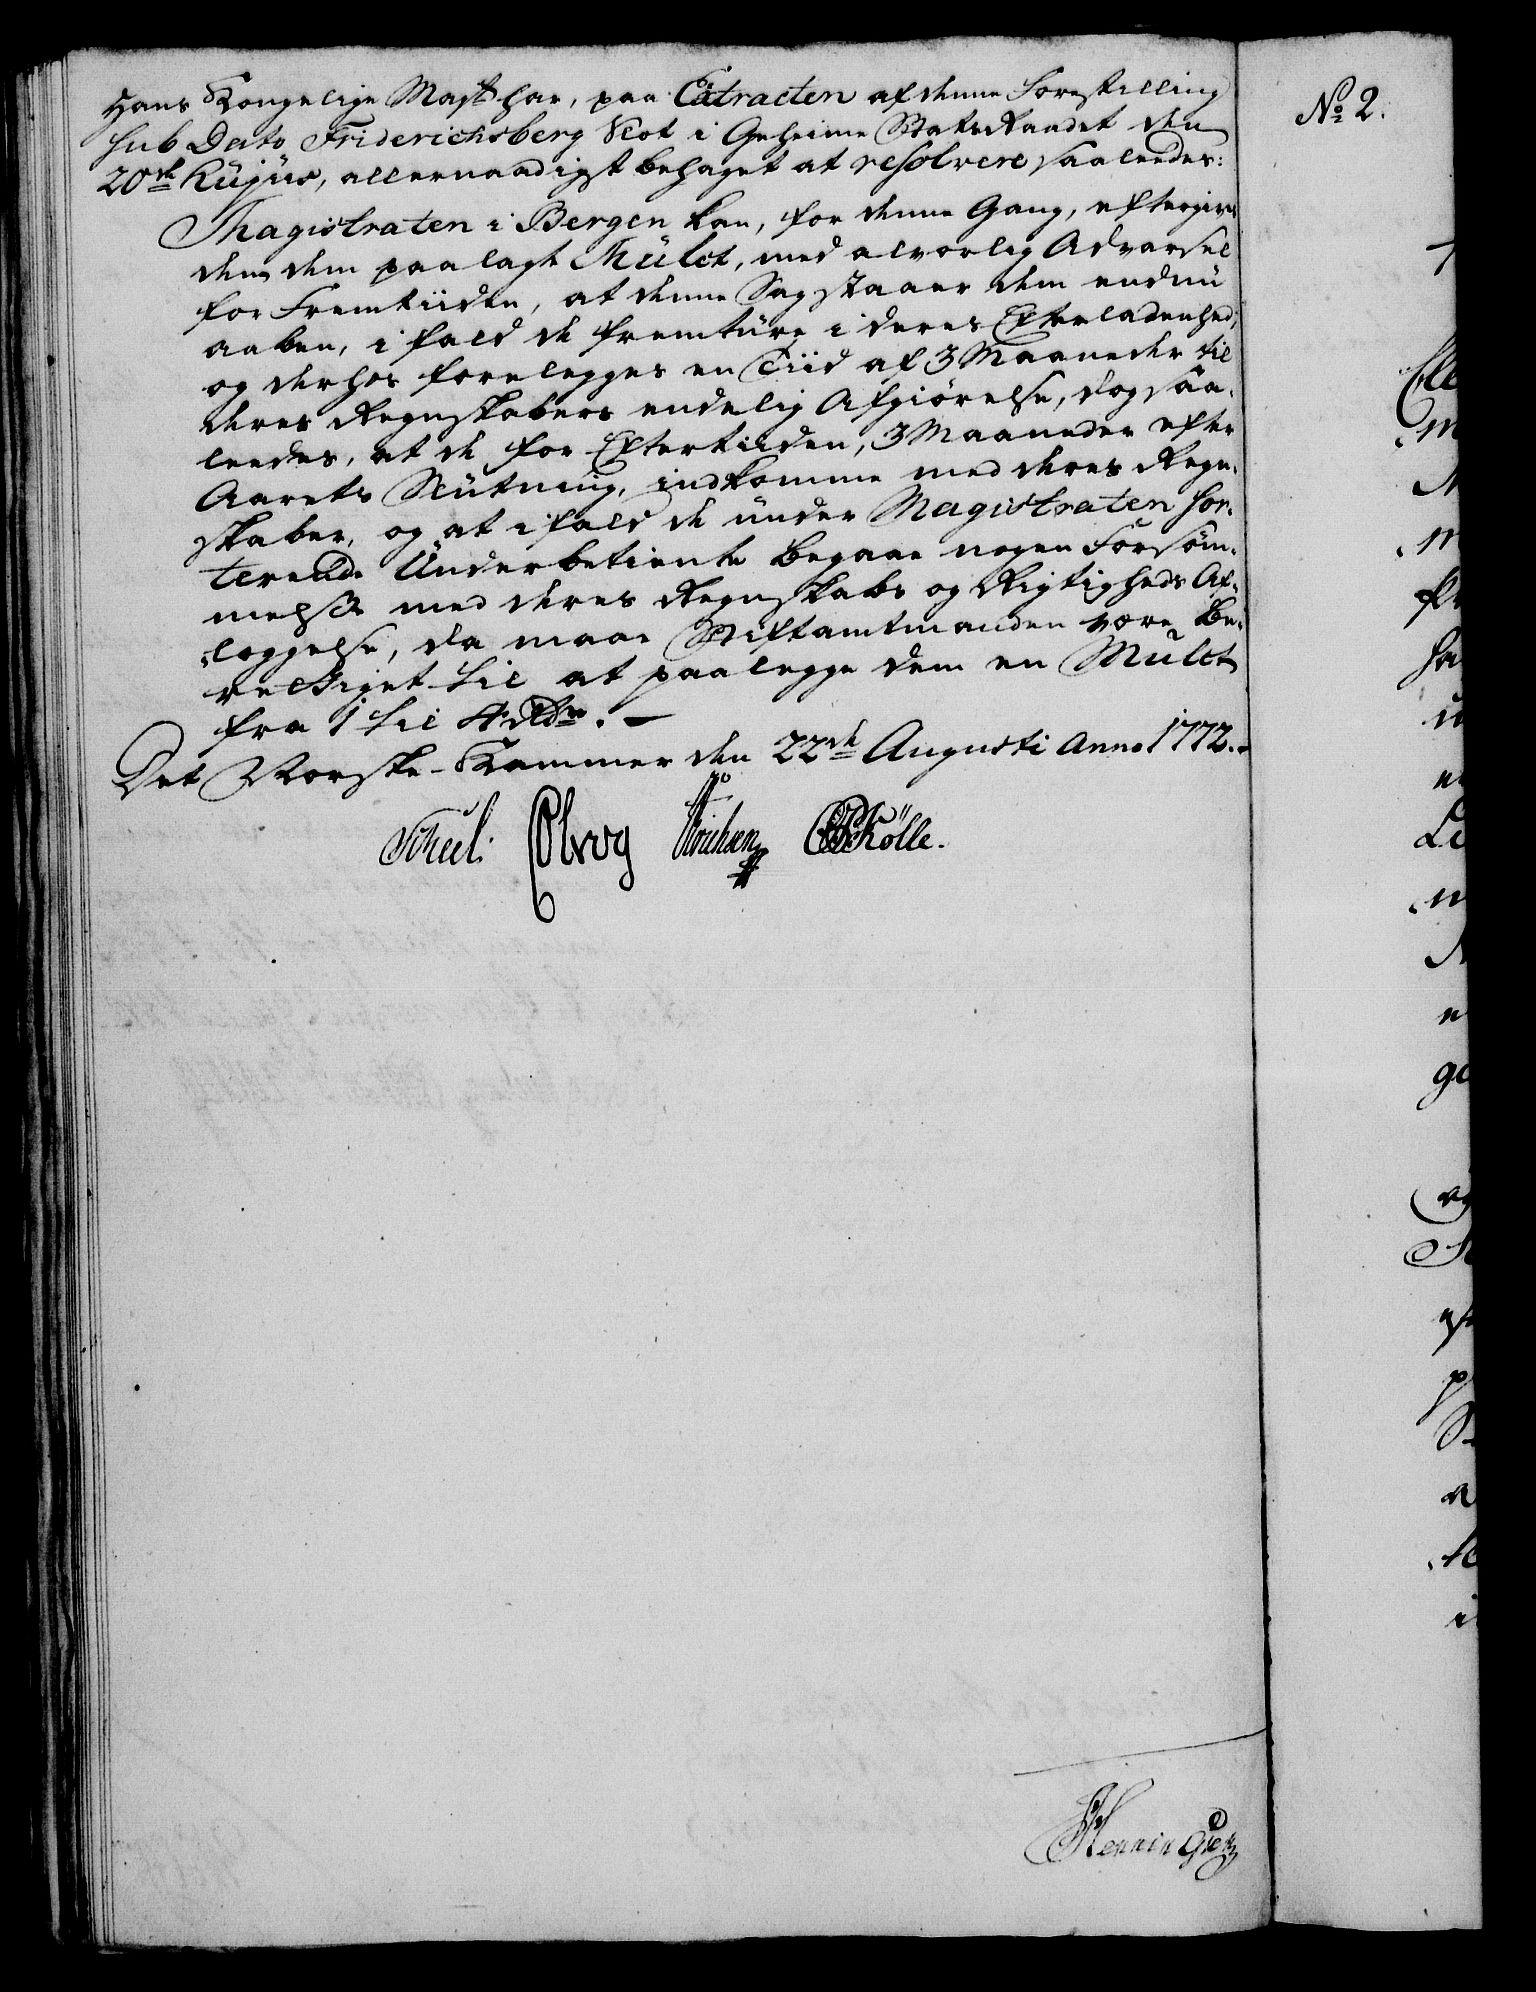 Hans Kongelige Mayt har, paa Extracten af denne Forestilling
sub Dato Friderichsberg Slot i Geheime StatsRaadet den
20de hujus, allernaadigst behaget at resolvere saaledes:
Magistraten i Bergen kan, for denne Gang, eftergives
den dem paalagte Mulct, med alvorlig Advarsel
for Fremtiiden, at denne Sag staaer dem endnu
aaben, i fald de fremture i deres Efterladenhed;
og derhos forelegges en Tiid af 3 Maaneder til
deres Regnskabers endelig Afgiørelse, dog saa-
ledes, at de for Eftertiiden, 3 Maaneder efter
Aarets Slutning, indkomme med deres Regn-
skaber, og at ifald de under Magistraten sor-
terende Underbetiente begaae nogen Forsøm-
melse med deres Regnskabs og Rigtigheds Af-
læggelse, da maae Stiftamtmanden være be-
rettiget til at paalegge dem en Mulct
fra 1 til 4 Rdr. —
Det Norske-Kammer den 22de Augusti Anno 1772.
Scheel. Holle.
No 2.